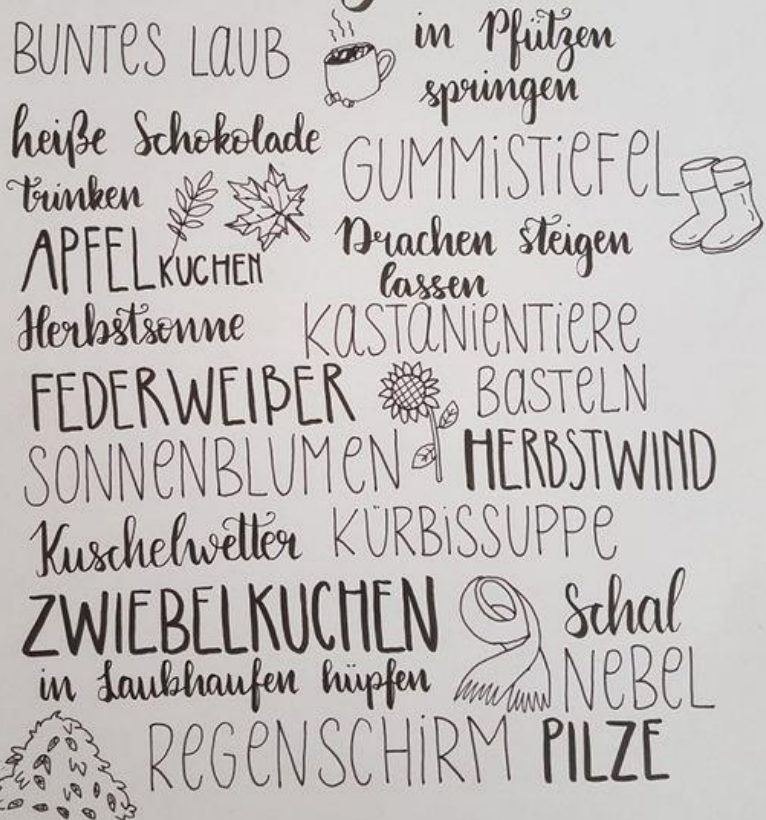 BUNTES LAUB
in Pfützen
springen
heiße Schokolade
trinken
GUMMISTIEFEL
APFELKUCHEN
Drachen steigen
lassen
Herbstsonne
KASTANIENTIERE
BASTELN
FEDERWEIßER
SONNENBLUMEN
HERBSTWIND
Kuschelwetter
KÜRBISSUPPE
ZWIEBELKUCHEN
Schal
in Laubhaufen hüpfen
NEBEL
REGENSCHIRM
PILZE